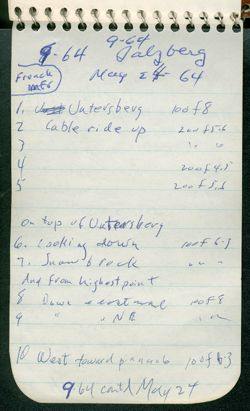 9-64
9-64 Salzberg
French
May 24 64
1. Untersberg 100 f 8
2 Cable ride up 200 f 5.6
3 " "
4 200 f 4.5
5 200 f 5.6
on top of Untersberg
6. Looking down 100 f 6.3
7. Snow " "
And from highest point
8 Down 100 f 8
9 " " NE " "
10 West toward 100 f 6.3
9-64 contd May 24